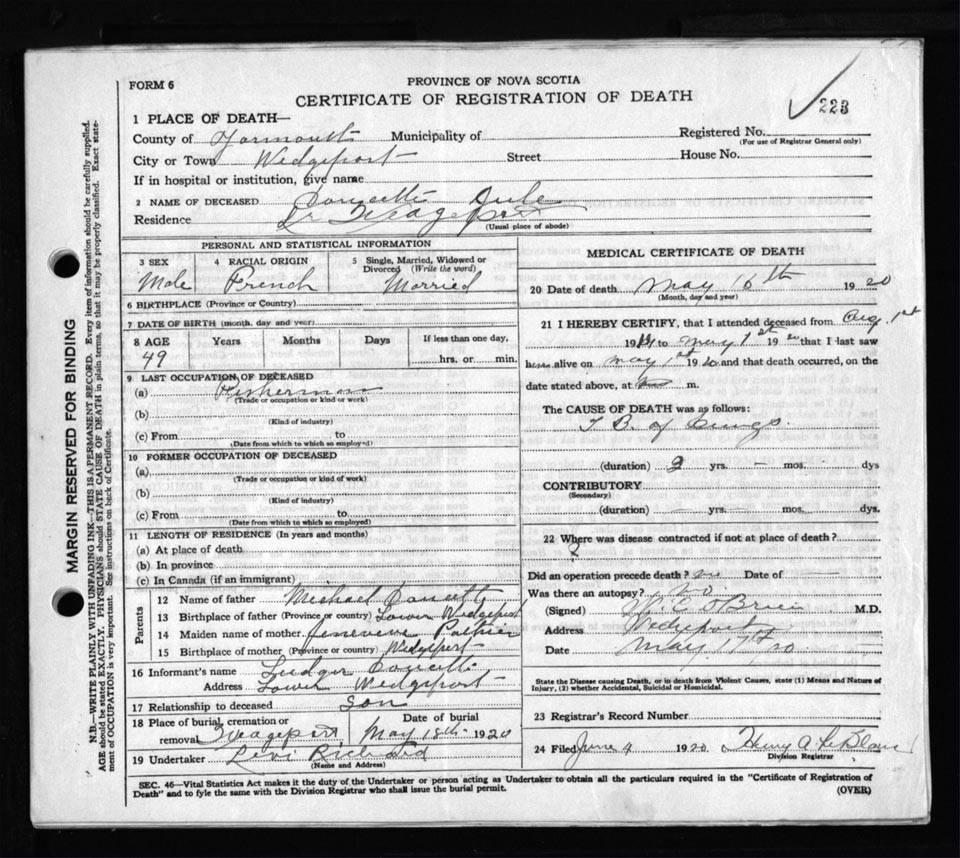 FORM 6
PROVINCE OF NOVA SCOTIA
CERTIFICATE OF REGISTRATION OF DEATH
223
1 PLACE OF DEATH—
County of Yarmouth Municipality of
Registered No.
(For use of Registrar General only)
City or Town Wedgeport Street House No.
If in hospital or institution, give name
2 NAME OF DECEASED Doucette Jule
Residence Lr Wedgeport
(Usual place of abode)
PERSONAL AND STATISTICAL INFORMATION
3 SEX 4 RACIAL ORIGIN 5 Single, Married, Widowed or Divorced (Write the word)
Male French Married
6 BIRTHPLACE (Province or Country)
7 DATE OF BIRTH (month, day and year)
8 AGE Years Months Days If less than one day,
49 hrs. or min.
9 LAST OCCUPATION OF DECEASED
(a) Fisherman
(Trade or occupation or kind or work)
(b)
(Kind of industry)
(c) From to
(Date from which to which so employed)
10 FORMER OCCUPATION OF DECEASED
(a)
(Trade or occupation or kind of work)
(b)
(Kind of industry)
(c) From to
(Date from which to which so employed)
11 LENGTH OF RESIDENCE (In years and months)
(a) At place of death
(b) In province
(c) In Canada (if an immigrant)
Parents
12 Name of father Michael Doucette
13 Birthplace of father (Province or country) Lower Wedgeport
14 Maiden name of mother Genevieve Pothier
15 Birthplace of mother (Province or country) Wedgeport
16 Informant's name Ludger Doucette
Address Lower Wedgeport
17 Relationship to deceased Son
18 Place of burial, cremation or removal Wedgeport
Date of burial May 18th 1920
19 Undertaker Levi Richard
(Name and Address)
MEDICAL CERTIFICATE OF DEATH
20 Date of death May 16th 1920
(Month, day and year)
21 I HEREBY CERTIFY, that I attended deceased from Aug. 1st
19 to May 1st 1920 that I last saw
alive on May 1st 1920 and that death occurred, on the
date stated above, at m.
The CAUSE OF DEATH was as follows:
T. B. of Lungs.
(duration) yrs. — mos. dys
CONTRIBUTORY
(Secondary)
(duration) — yrs. — mos. dys.
22 Where was disease contracted if not at place of death?
?
Did an operation precede death? no Date of —
Was there an autopsy? No
(Signed) O'Brien M.D.
Address Wedgeport "
Date May 17th 20
State the Disease causing Death, or in death from Violent Causes, state (1) Means and Nature of
Injury, (2) whether Accidental, Suicidal or Homicidal.
23 Registrar's Record Number
24 Filed June 4 1920 Henry A LeBlanc
Division Registrar
SEC. 46—Vital Statistics Act makes it the duty of the Undertaker or person acting as Undertaker to obtain all the particulars required in the "Certificate of Registration of
Death" and to fyle the same with the Division Registrar who shall issue the burial permit.
(OVER)
MARGIN RESERVED FOR BINDING
N.B.—WRITE PLAINLY WITH UNFADING INK—THIS IS A PERMANENT RECORD. Every item of information should be carefully supplied.
AGE should be stated EXACTLY. PHYSICIANS should STATE CAUSE OF DEATH in plain terms, so that it may be properly classified. Exact state-
ment of OCCUPATION is very important. See instructions on back of Certificate.